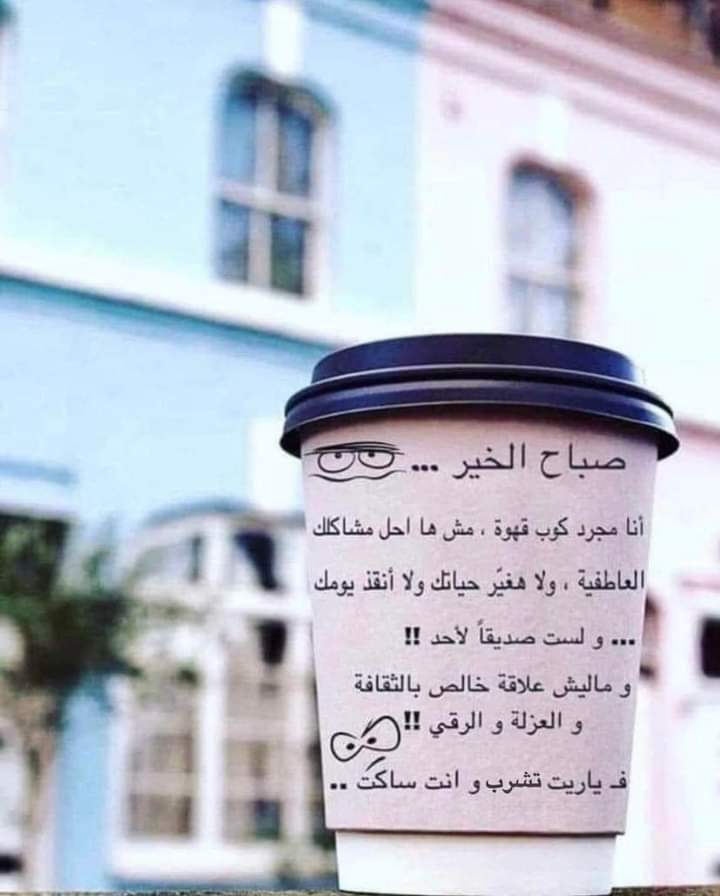 صباح الخير ...
أنا مجرد كوب قهوة ، مش ها احل مشاكلك
العاطفية ، ولا هغيّر حياتك ولا أنقذ يومك
... و لست صديقاً لأحد !!
و ماليش علاقة خالص بالثقافة
و العزلة و الرقي !!
فـ ياريت تشرب و انت ساكت ..